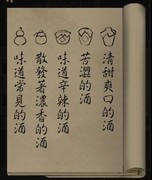 清甜爽口的酒
芳澀的酒
味道辛辣的酒
散發著濃香的酒
味道常見的酒